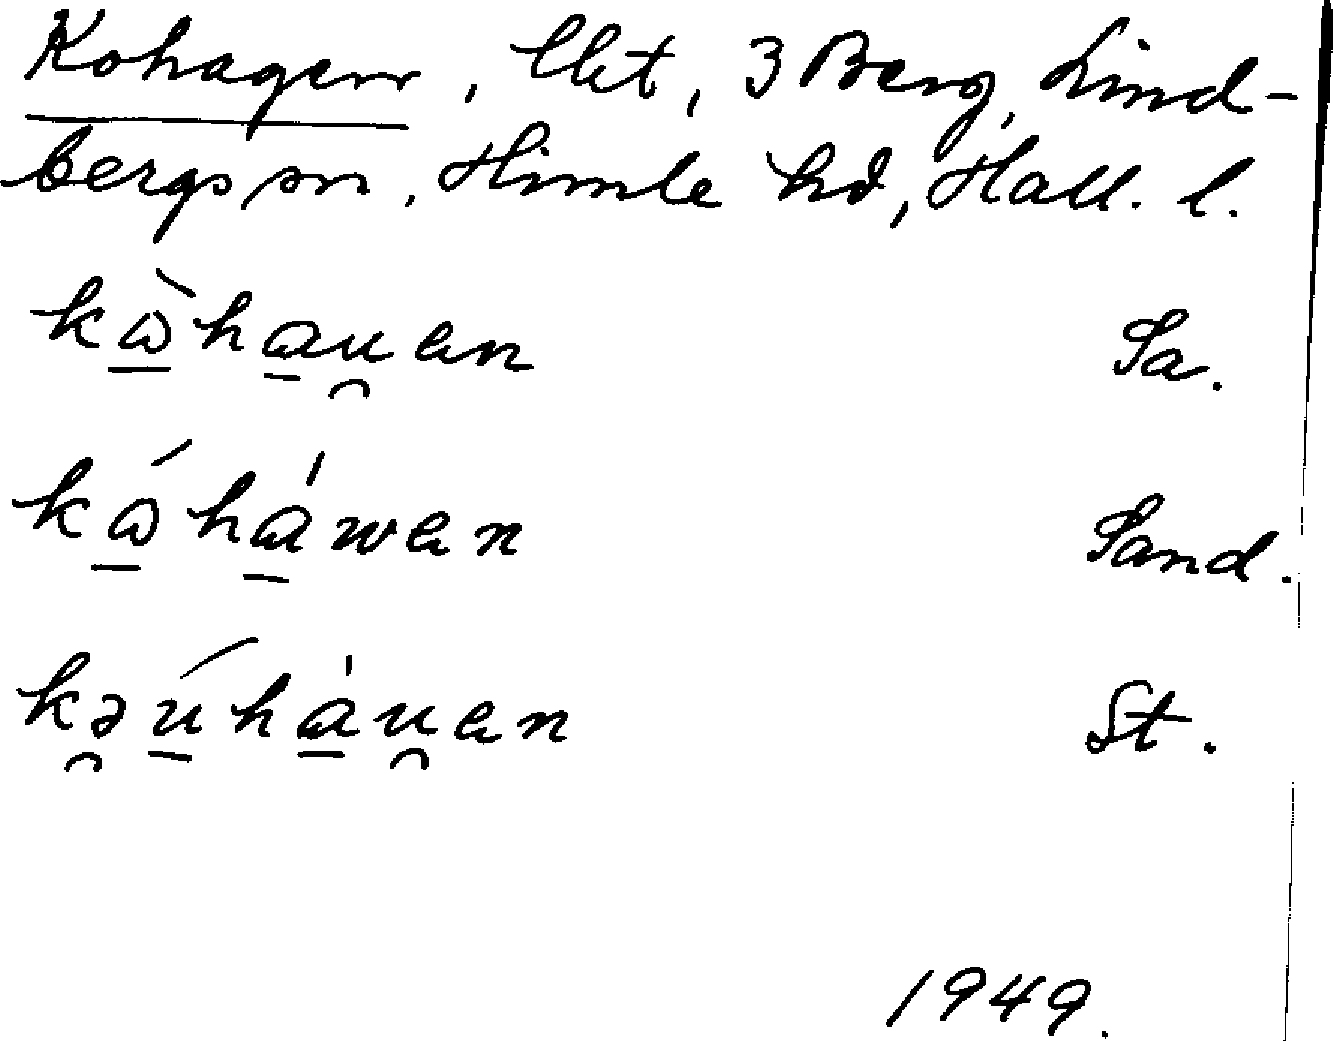 Kohagen, lht, 3 Berg, Lind-
bergs sn, Himle hd, Hall. l.
kɷ̀hɑu̯en Sa.
kɷ́hɑ́wen Sand.
kə̯úhɑ́u̯en St.
1949.